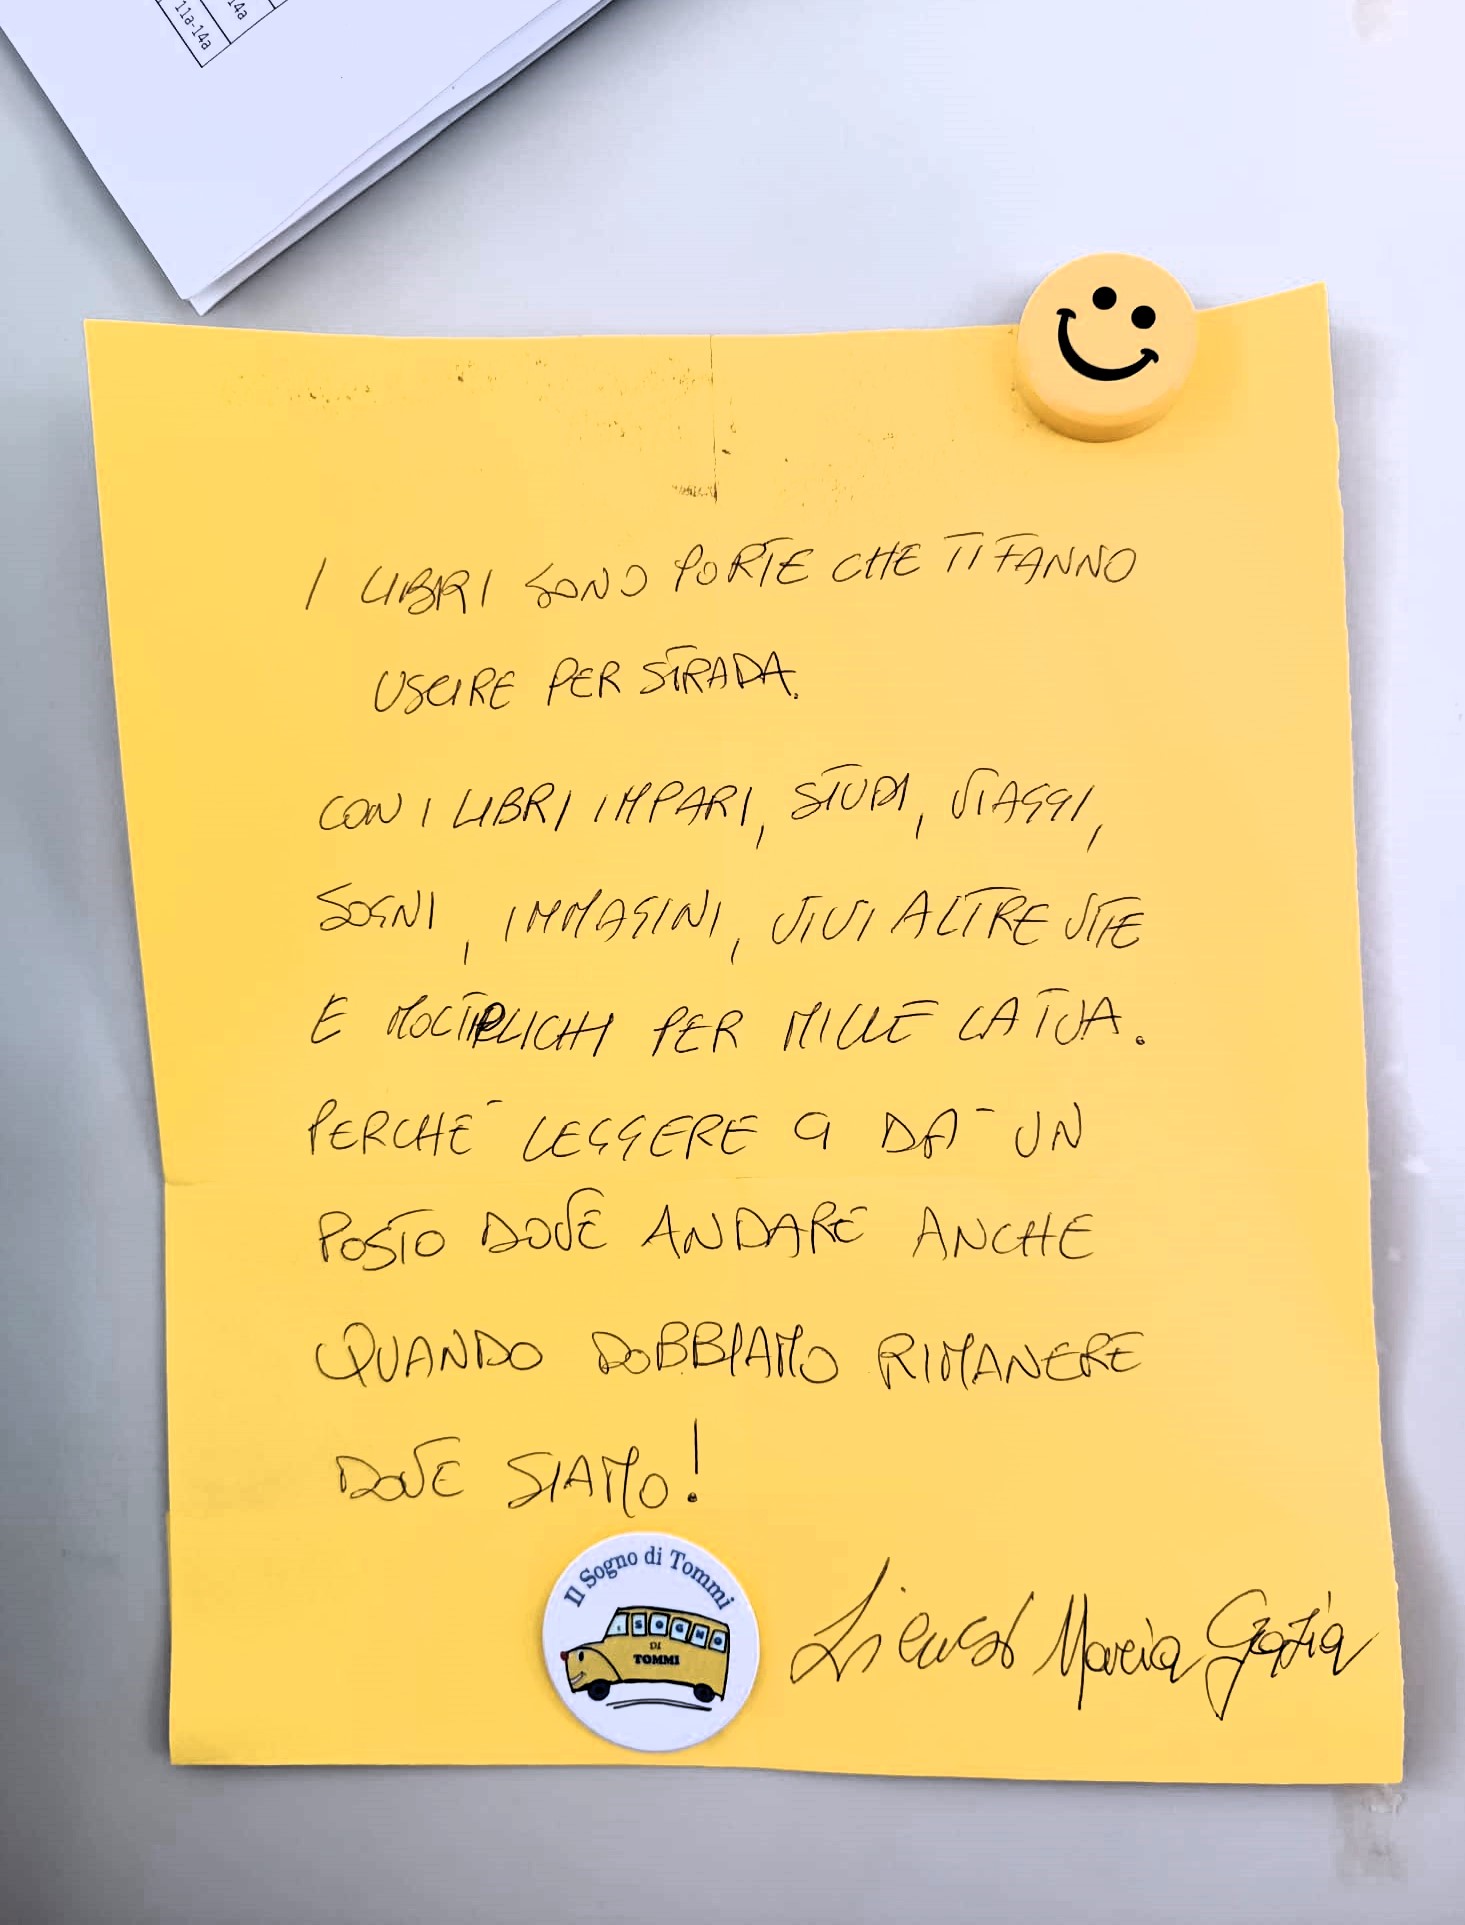 11a-14a
14a
I LIBRI SONO PORTE CHE TI FANNO
USCIRE PER STRADA.
CON I LIBRI IMPARI, STUDI, VIAGGI,
SOGNI, IMMAGINI, VIVI ALTRE VITE
E MOLTIPLICHI PER MILLE LA TUA.
PERCHÉ LEGGERE CI DÀ UN
POSTO DOVE ANDARE ANCHE
QUANDO DOBBIAMO RIMANERE
DOVE SIAMO!
Il Sogno di Tommi
IL SOGNO
DI
TOMMI
Maria Grazia